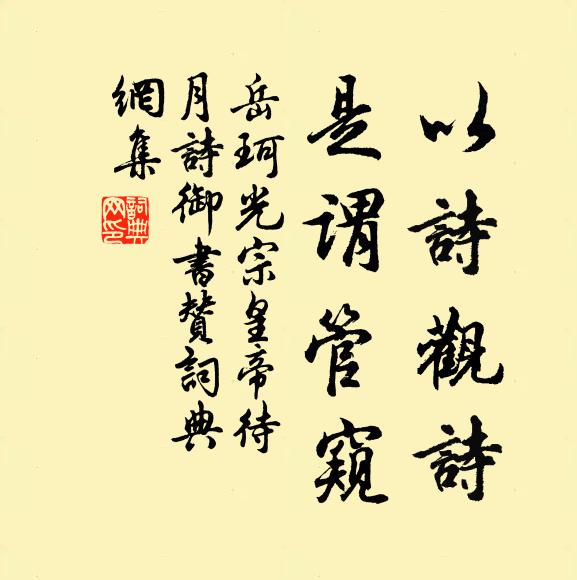 以詩觀詩
是謂管窺
岳珂光宗皇帝待
月詩御書贊詞典
網集
詞典
网印